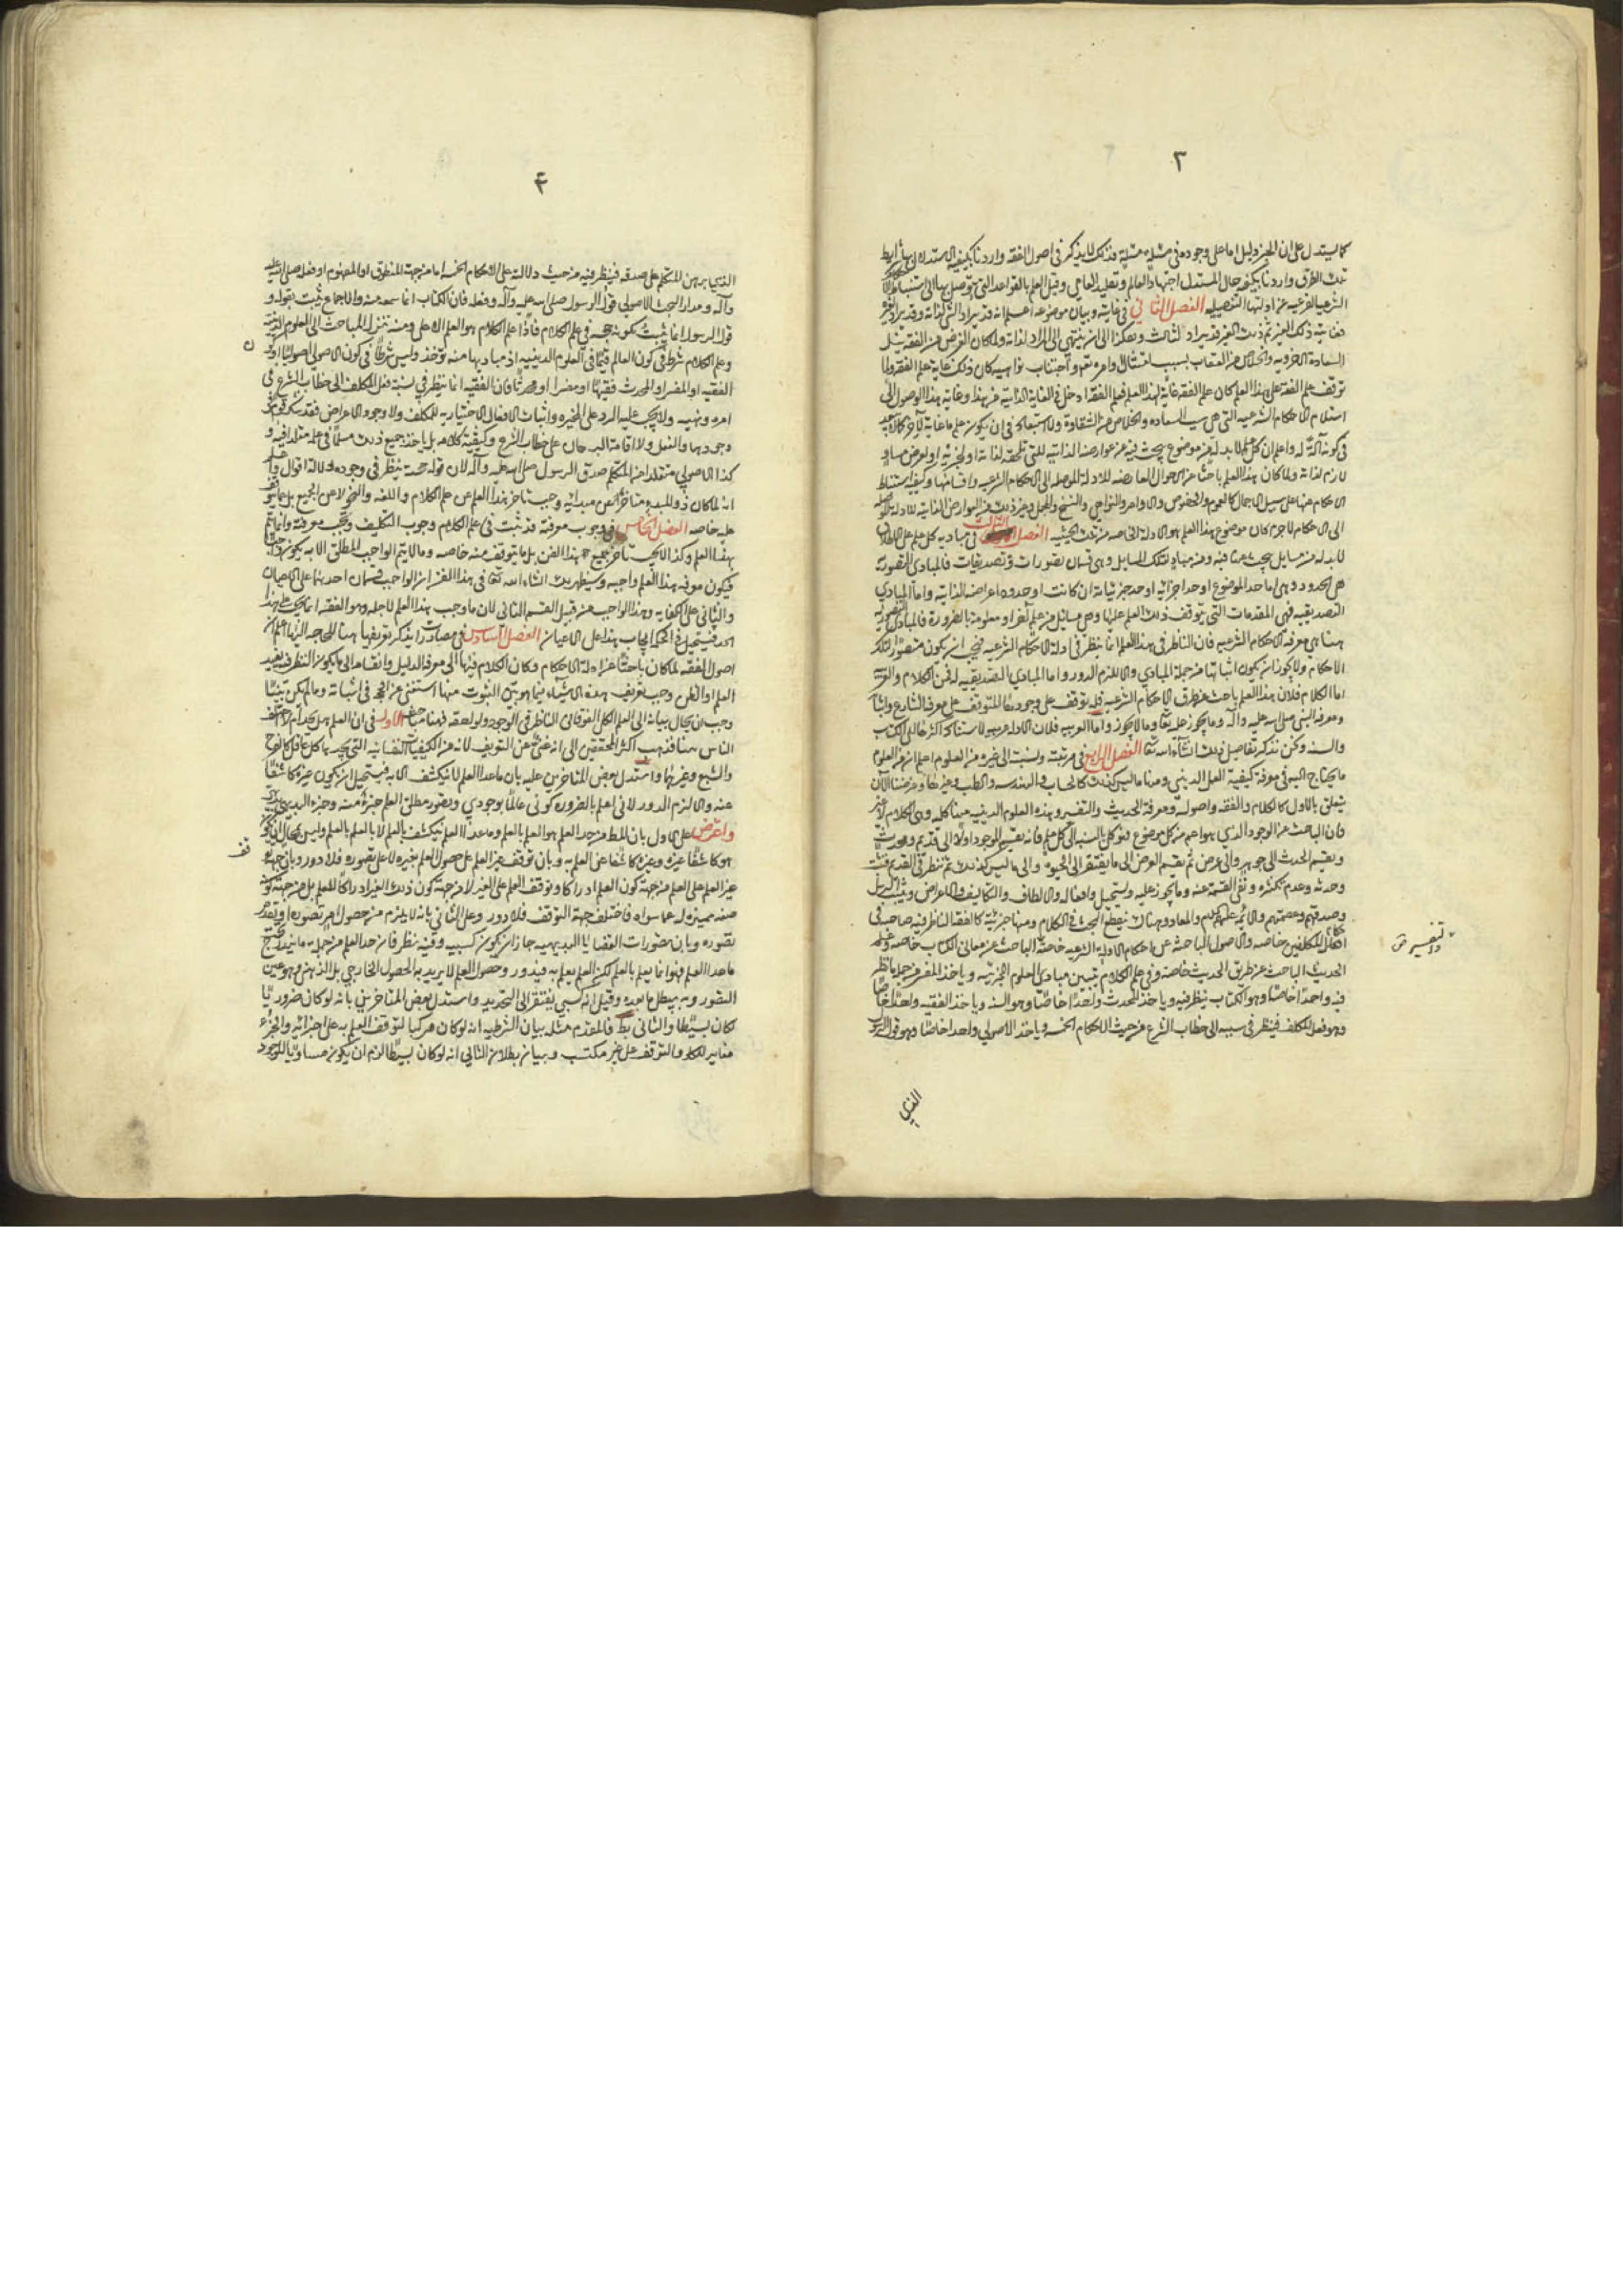 ٣
كما يستدل على ان الخبر دليل اما على وجوده في مسئلة مسئلة فذلك لا يذكر في اصول الفقه واردنا بكيفية الاستدلال بها شرايط
تلك الطرق واردنا بكيفية حال المستدل اجتهاد العالم وتقليد العامي وقيل العلم بالقواعد التي يتوصل بها الى استنباط الاحكام
الشرعية الفرعية عن ادلتها التفصيلية الفصل الثاني في غايته وبيان موضوعه اعلم انه قد يراد الشئ لذاته وقد يراد لغيره
فغايته ذلك الغير ثم ذلك الغير قد يراد لثالث وهكذا الى ان ينتهي الى المراد لذاته ولما كان الغرض من الفقه نيل
السعادة الاخروية والخلاص من العقاب بسبب امتثال اوامره تعالى واجتناب نواهيه كان ذلك غاية علم الفقه ولما
توقف علم الفقه على هذا العلم كان علم الفقه غاية لهذا العلم فعلم الفقه ادخل في الغاية الذاتية من هذا وغاية هذا الوصول الى
استعلام الاحكام الشرعية التي هي سبب السعادة والخلاص من الشقاوة ولا استبعاد في ان يكون علم ما غاية لآخر كالابعد
في كونه آلة له واعلم ان كل علم لا بد له من موضوع يبحث فيه عن عوارضه الذاتية التي تلحقه لذاته او لجزئه او لعرض مساو
لازم لذاته ولما كان هذا العلم باحثا عن الاحوال العارضة للادلة الموصلة الى الاحكام الشرعية واقسامها وكيفية استنباط
الاحكام منها على سبيل الاجمال كالعموم والخصوص والاوامر والنواهي والنسخ والمجمل وغير ذلك من العوارض الذاتية للادلة الموصلة
الى الاحكام لا جرم كان موضوع هذا العلم هو الادلة الخاصة من تلك الحيثية الفصل الثالث في مباديه كل علم على الاطلاق
لا بد له من مسايل يبحث عنها فيه ومن مباد لتلك المسايل وهي قسمان تصورات وتصديقات فالمبادي التصورية
هي الحدود وهي اما حد الموضوع او حد اجزائه او حد جزئياته ان كانت او حدود اعراضه الذاتية واما المبادي
التصديقية فهي المقدمات التي يتوقف ذلك العلم عليها وهي مسايل من علم آخر او معلومة بالضرورة فالمبادي التصورية
هنا هي معرفة الاحكام الشرعية فان الناظر في هذا العلم انما ينظر في ادلة الاحكام الشرعية فيجب ان يكون متصورا لتلك
الاحكام ولا يجوز ان يكون اثباتها من جملة المبادي والا لزم الدور واما المبادي التصديقية له فمن الكلام والعربية
اما الكلام فلان هذا العلم باحث عن طرق الاحكام الشرعية فله توقف على وجودها المتوقف على معرفة الشارع واثباته
ومعرفة النبي صلى الله عليه وآله وما يجوز عليه تعالى وما لا يجوز واما العربية فلان الادلة عربية لاستناد اكثرها الى الكتاب
والسنة ونحن نذكر تفاصيل ذلك انشاء الله تعالى الفصل الرابع في مرتبته ونسبته الى غيره من العلوم اعلم ان من العلوم
ما يحتاج اليه في معرفة كيفية العمل الديني ومنها ما ليس كذلك كالحساب والهندسة والطب وغيرها وغرضنا الآن
يتعلق بالاول كالكلام والفقه واصوله ومعرفة الحديث والتفسير وهذه العلوم الدينية
فان الباحث عن الوجود الذي هو اعم من كل موضوع فهو كلي بالنسبة الى كل علم فانه يقسم الموجود اولا الى قديم ومحدث
ويقسم المحدث الى جوهر والى عرض ثم يقسم العرض الى ما يفتقر الى الحيوة والى ما ليس كذلك ثم ينظر في القديم فيثبت
وحدته وعدم تكثره ونفي القسمة عنه وما يجوز عليه ويستحيل وافعاله والالطاف والتكاليف والاعراض ويثبت الرسل
وصدقهم وعصمتهم والائمة عليهم السلام والمعاد وهناك ينقطع البحث في الكلام ومنها جزئية كالفقه الناظر فيه صاحبه في
افعال المكلفين خاصة والاصول الباحثة عن احكام الادلة الشرعية خاصة الباحث عن معاني الكتاب خاصة وعلم
الحديث الباحث عن طريق الحديث خاصة وفي علم الكلام يتبين مبادي العلوم الجزئية وياخذ المفسر من جملة ما نظر
فيه واحدا خاصا وهو الكتاب ينظر فيه وياخذ المحدث واحدا خاصا وهو السنة وياخذ الفقيه واحدا خاصا
وهو فعل المكلف فينظر في نسبته الى خطاب الشرع من حيث الاحكام الخمسة وياخذ الاصولي واحدا خاصا وهو قول الرسول
والتفسير
الذي
٤
الذي برهن المتكلم على صدقه فينظر فيه من حيث دلالته على الاحكام الخمسة اما من جهة المنطوق او المفهوم او فعله صلى الله عليه
وآله ومدار البحث الاصولي قول الرسول صلى الله عليه وآله وفعله فان الكتاب انما سمعه منه والاجماع يثبت بقوله و
قول الرسول انما يثبت كونه حجة في علم الكلام فاذا علم الكلام هو العلم الاعلى ومنه تنزل المباحث الى العلوم الدينية
وعلم الكلام شرط في كون العالم عالما في العلوم الدينية اذ مباديها منه تؤخذ وليس شرطا في كون الاصولي اصوليا او
الفقيه او المفسر او المحدث فقيها او مفسرا او محدثا فان الفقيه انما ينظر في نسبة فعل المكلف الى خطاب الشرع في
امره ونهيه ولا يجب عليه الرد على المجبرة واثبات الافعال الاختيارية للمكلف ولا وجود الاعراض فقد شك قوم في
وجودها والفعل ولا اقامة البرهان على خطاب الشرع وكيفية كلامه بل ياخذ جميع ذلك مسلما في علمه مقلدا فيه و
كذا الاصولي متقلد من المتكلم صدق الرسول صلى الله عليه وآله لان قوله حجة ينظر في وجوه دلالة اقواله واعلم
انه لما كان ذو المبدء متاخرا عن مبدئه وجب تاخر هذا العلم عن علم الكلام واللغة والنحو لا عن الجميع بل عما يتوقف
عليه خاصة الفصل الخامس في وجوب معرفته قد ثبت في علم الكلام وجوب التكليف وتجب معرفته وانما يتم
بهذا العلم وكذا لا يجب تاخر جميع هذا الفن بل ما يتوقف منه خاصة وما لا يتم الواجب المطلق الا به يكون واجبا
فيكون معرفة هذا العلم واجبة وسيظهر لك انشاء الله تعالى في هذا الفن ان الواجب قسمان احدهما على الاعيان
والثاني على الكفاية وهذا الواجب من قبيل القسم الثاني لان ما وجب هذا العلم لاجله وهو الفقه انما يجب على هذا
الحد فيستحيل في الحكمة ايجاب هذا على الاعيان الفصل السادس في مصادرات يذكر تعريفها هنا للحاجة اليها اعلم ان
اصول الفقه لما كان باحثا عن ادلة الاحكام وكان الكلام فيها الى معرفة الدليل وانقسامه الى ما يكون النظر فيه يفيد
العلم او الظن وجب تعريف هذه الاشياء فيما هو بين الثبوت منها استغنى عن الحجة في اثباته وما لم يكن بينا
وجب ان يحال بيانه الى العلم الكلي الفوقاني الناظر في الوجود ولواحقه فهنا مباحث الاول في ان العلم هل يحد ام لا اختلف
الناس هنا فذهب اكثر المحققين الى انه غني عن التعريف لانه من الكيفيات النفسانية التي يجدها كل عاقل كالجوع
والشبع وغيرهما واستدل بعض المتاخرين عليه بان ما عدا العلم لا ينكشف الا به فيستحيل ان يكون غيره كاشفا
عنه والا لزم الدور لاني اعلم بالضرورة كوني عالما بوجودي وتصور مطلق العلم جزء منه وجزء البديهي
واعترض على الاول بان المطلوب من حد العلم هو العلم بالعلم وما عدا العلم ينكشف بالعلم لا بالعلم بالعلم وليس بمحال ان يكون
هو كاشفا عن غيره وغيره كاشفا عن العلم به وبان توقف غير العلم على حصول العلم بغيره لا على تصوره فلا دور وبان جهة توقف
غير العلم على العلم من جهة كون العلم ادراكا وتوقف العلم على الغير لا من جهة كون ذلك الغير ادراكا للعلم بل من جهة كونه
صفة مميزة له عما سواه فاختلف جهة التوقف فلا دور وعلى الثاني بانه لا يلزم من حصول امر تصوره او تقدم
تصوره وبان تصورات القضايا البديهية جاز ان يكون كسبية وفيه نظر فان حد العلم من جملة ما يندرج تحت
ما عدا العلم فهو انما يعلم بالعلم لكن العلم يعلم به فيدور وحصول العلم لا يريد به الحصول الخارجي بل الذهني وهو عين
التصور وبه يبطل ما بعده وقيل انه كسبي يفتقر الى التحديد واستدل بعض المتاخرين بانه لو كان ضروريا
لكان بسيطا والثاني بط فالمقدم مثله بيان الشرطية انه لو كان مركبا لتوقف العلم به على اجزائه والجزء
مغاير للكل والمتوقف على غيره مكتسب وبيان بطلان التالي انه لو كان بسيطا لزم ان يكون مساويا للوجود